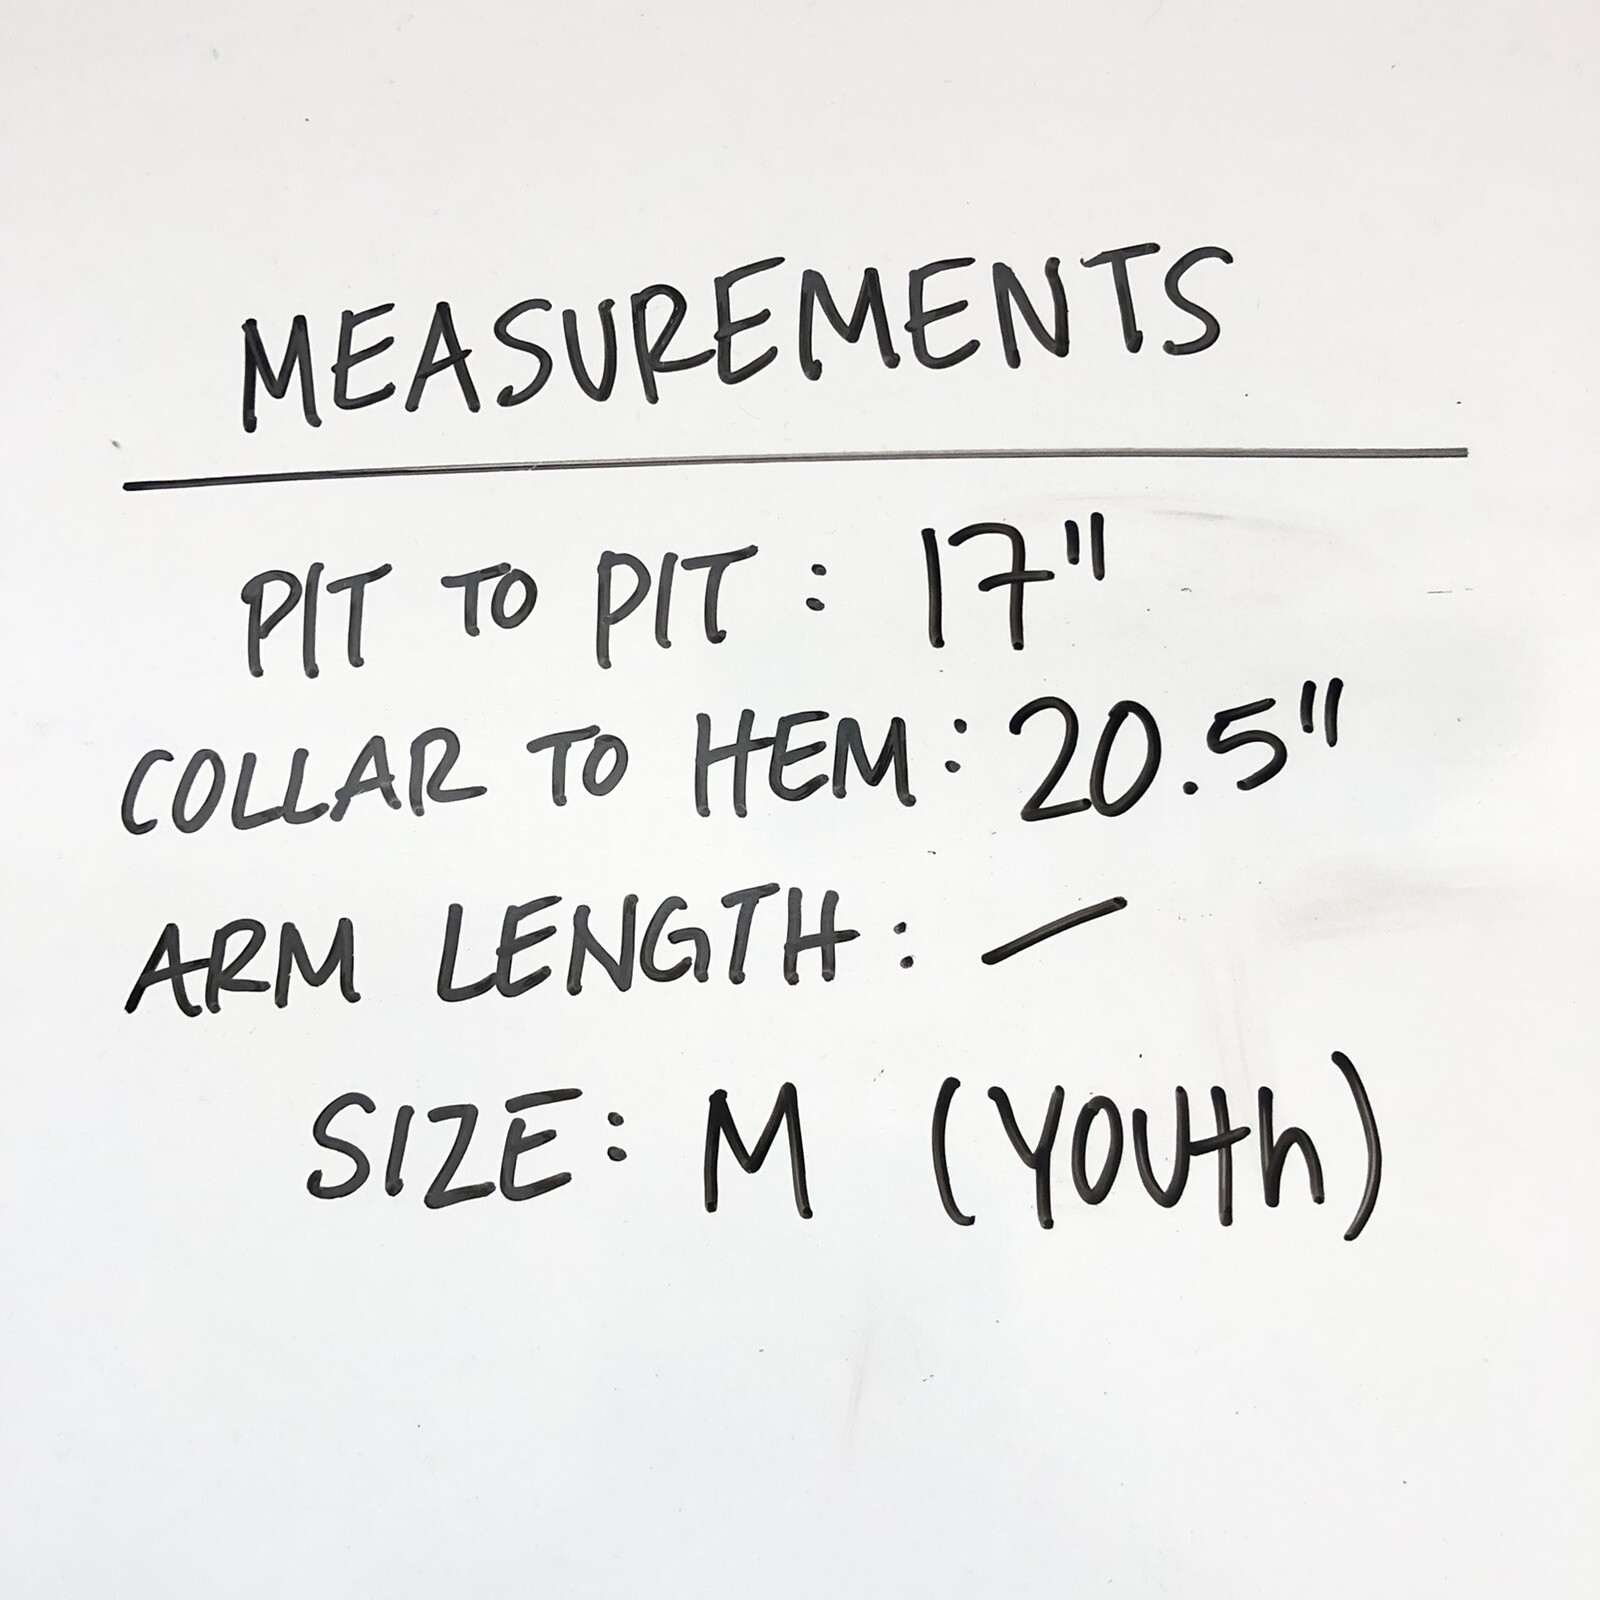 MEASUREMENTS
PIT TO PIT: 17"
COLLAR TO HEM: 20.5"
ARM LENGTH: —
SIZE: M (YOUth)